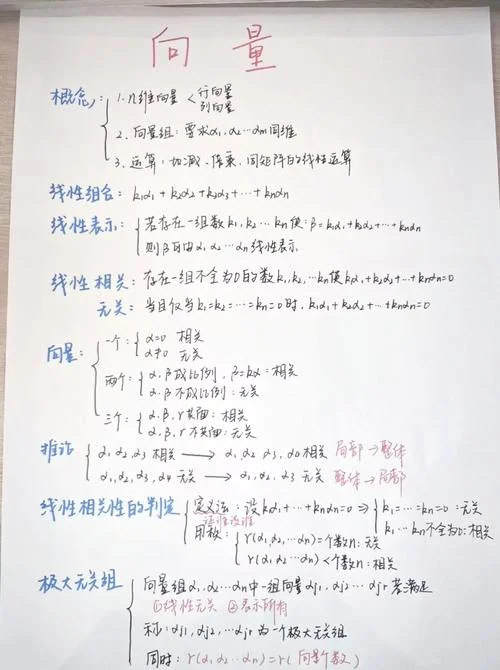 向量
概念: 1. n维向量 < 行向量
列向量
2. 向量组: 要求α1, α2…αm同维
3. 运算: 加减、倍乘、同矩阵的线性运算
线性组合: k1α1+k2α2+k3α3+…+knαn
线性表示: 若存在一组数k1, k2…kn使: β=k1α1+k2α2+…+knαn
则β可由α1 α2…αn线性表示
线性相关: 存在一组不全为0的数k1, k2, …kn使k1α1+k2α2+…+knαn=0
无关: 当且仅当k1=k2=…=kn=0时, k1α1+k2α2+…+knαn=0
向量: 一个: α=0 相关
α≠0 无关
两个: α.β成比例, β=kα: 相关
α.β不成比例: 无关
三个: α.β.γ共面: 相关
α.β.γ不共面: 无关
推论 α1,α2,α3 相关 → α1,α2 α3,α4 相关 局部→整体
α1,α2,α3,α4 无关 → α1,α2.α3 无关 整体→局部
线性相关性的判定 定义法: 设k1α1+…+knαn=0 ⇒ k1=…=kn=0: 无关
k1…kn不全为0: 相关
用秩: r(α1,α2…αn)=个数n: 无关
r(α1,α2…αn)<个数n: 相关
极大无关组 向量组α1,α2…αn中一组向量αj1,αj2…αjr若满足
①线性无关 ②表示所有
称: αj1, αj2, …αjr为一个极大无关组
同时: r(α1, α2…αn)=r(向量个数)